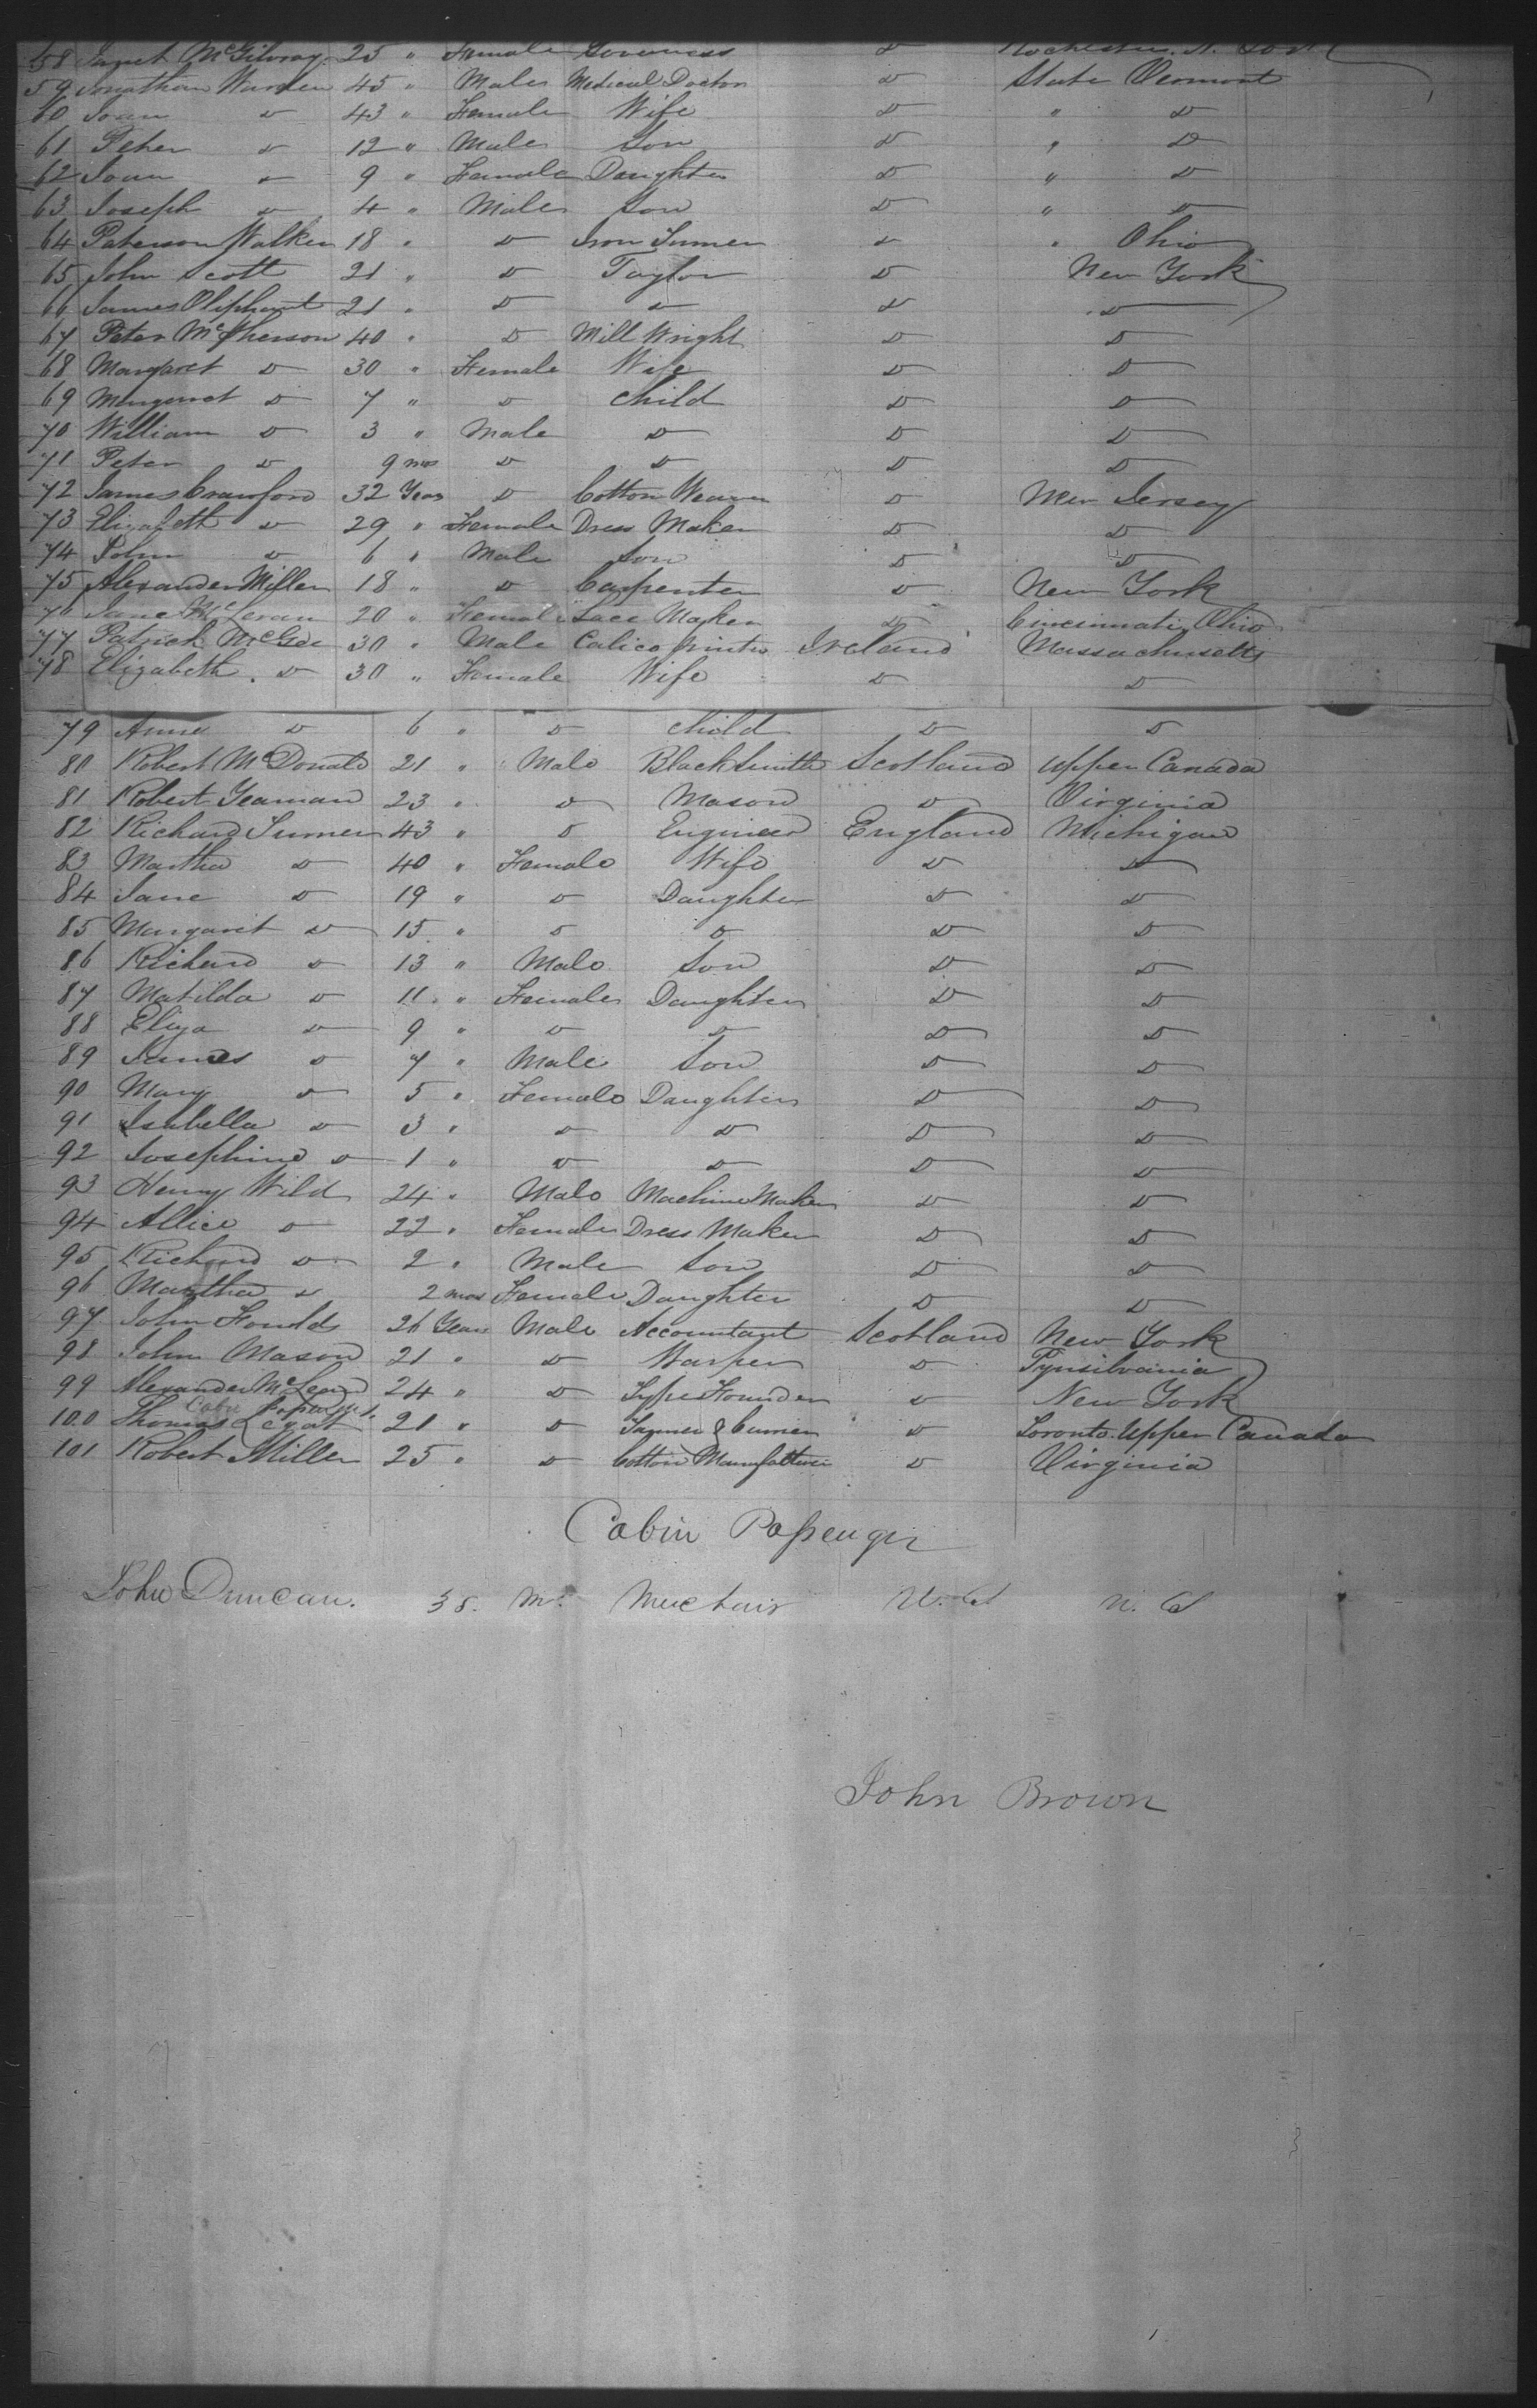 58 Janet McGilvray 25 " Female Governess D Rochester N. York
59 Jonathan Warden 45 " Male Medical Doctor D State Vermont
60 Joan D 43 " Female Wife D " D
61 Peter D 12 " Male Son D " D
62 Joan D 9 " Female Daughter D " D
63 Joseph D 4 " Male Son D " D
64 Paterson Walker 18 " D Iron Turner D " Ohio
65 John Scott 21 " D Taylor D New York
66 James Oliphant 21 " D D D D
67 Peter McPherson 40 " D Mill Wright D D
68 Margaret D 30 " Female Wife D D
69 Margaret D 7 " D Child D D
70 William D 3 " Male D D D
71 Peter D 9 mos D D D D
72 James Crawford 32 Years D Cotton Weaver D New Jersey
73 Elizabeth D 29 " Female Dress Maker D D
74 John D 6 " Male Son D D
75 Alexander Miller 18 " D Carpenter D New York
76 Jane 20 " Female Lace Maker D Cincinnati Ohio
77 Patrick McGee 30 " Male Calico Printer Ireland Massachusetts
78 Elizabeth D 30 " Female Wife D D
79 Anne D 6 " D Child D D
80 Robert McDonald 21 " Male BlackSmith Scotland Upper Canada
81 Robert Yeaman 23 " D Mason D Virginia
82 Richard Turner 43 " D Engineer England Michigan
83 Martha D 40 " Female Wife D D
84 Jane D 19 " D Daughter D D
85 Margaret D 15 " D D D D
86 Richard D 13 " Male Son D D
87 Matilda D 11 " Female Daughter D D
88 Eliza D 9 " D D D D
89 James D 7 " Male Son D D
90 Mary D 5 " Female Daughter D D
91 Isabella D 3 " D D D D
92 Josephine D 1 " D D D D
93 Henry Wild 24 " Male Machine Maker D D
94 Allice D 22 " Female Dress Maker D D
95 Richard D 2 " Male Son D D
96 Martha D 2 mos Female Daughter D D
97 John Foulds 26 Years Male Accountant Scotland New York
98 John Mason 21 " D Warper D Pynsilvania
99 Alexander McLean 24 " D Type Founder D New York
100 Thomas Legat 21 " D Tanner & Currier D Toronto Upper Canada
101 Robert Miller 25 " D Cotton Manufacturer D Virginia
Cabin Passenger
John Duncan. 38. M. U. S U. S
John Brown